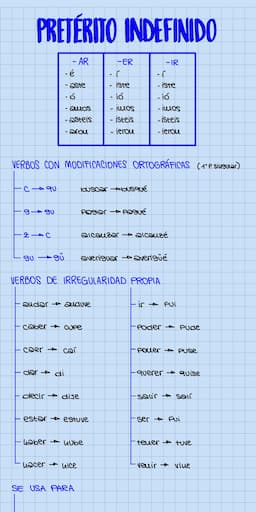 PRETÉRITO INDEFINIDO
-AR -ER -IR
- é - í - í
- aste - iste - iste
- ó - ió - ió
- amos - imos - imos
- asteis - isteis - isteis
- aron - ieron - ieron
VERBOS CON MODIFICACIONES ORTOGRÁFICAS (1ª P. singular)
C → qu buscar → busqué
g → gu Pagar → Pagué
z → c alcanzar → alcanzé
gu → gü averiguar → averigüé
VERBOS DE IRREGULARIDAD PROPIA
andar → anduve ir → Fui
caber → cupe Poder → Pude
caer → caí Poner → Puse
dar → di querer → quise
decir → dije salir → salí
estar → estuve ser → Fui
haber → hube tener → tuve
hacer → hice venir → vine
SE USA PARA